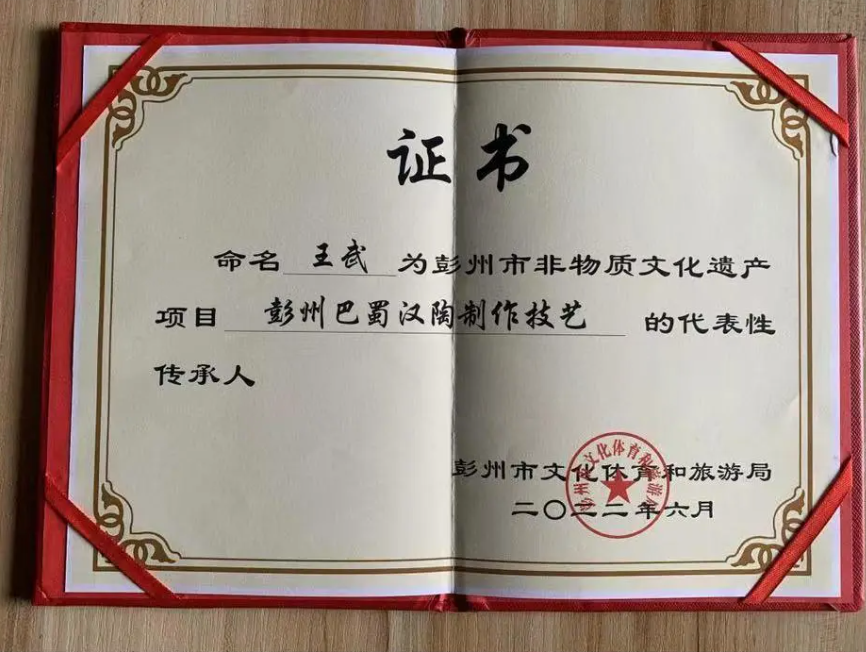 证书
命名王武为彭州市非物质文化遗产
项目彭州巴蜀汉陶制作技艺的代表性
传承人
彭州市文化体育和旅游局
二〇二二年六月
彭州市文化体育和旅游局